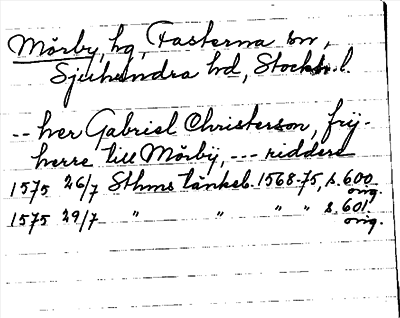 Mörby, hg, Fasterna sn,
Sjuhundra hd, Stockh. l.
-- her Gabriel Christerson, frij-
herre till Mörbÿ, --- riddere
1575 26/7 Sthms tänkeb. 1568-75, s. 600
orig.
1575 29/7 " " " " s. 601.
orig.